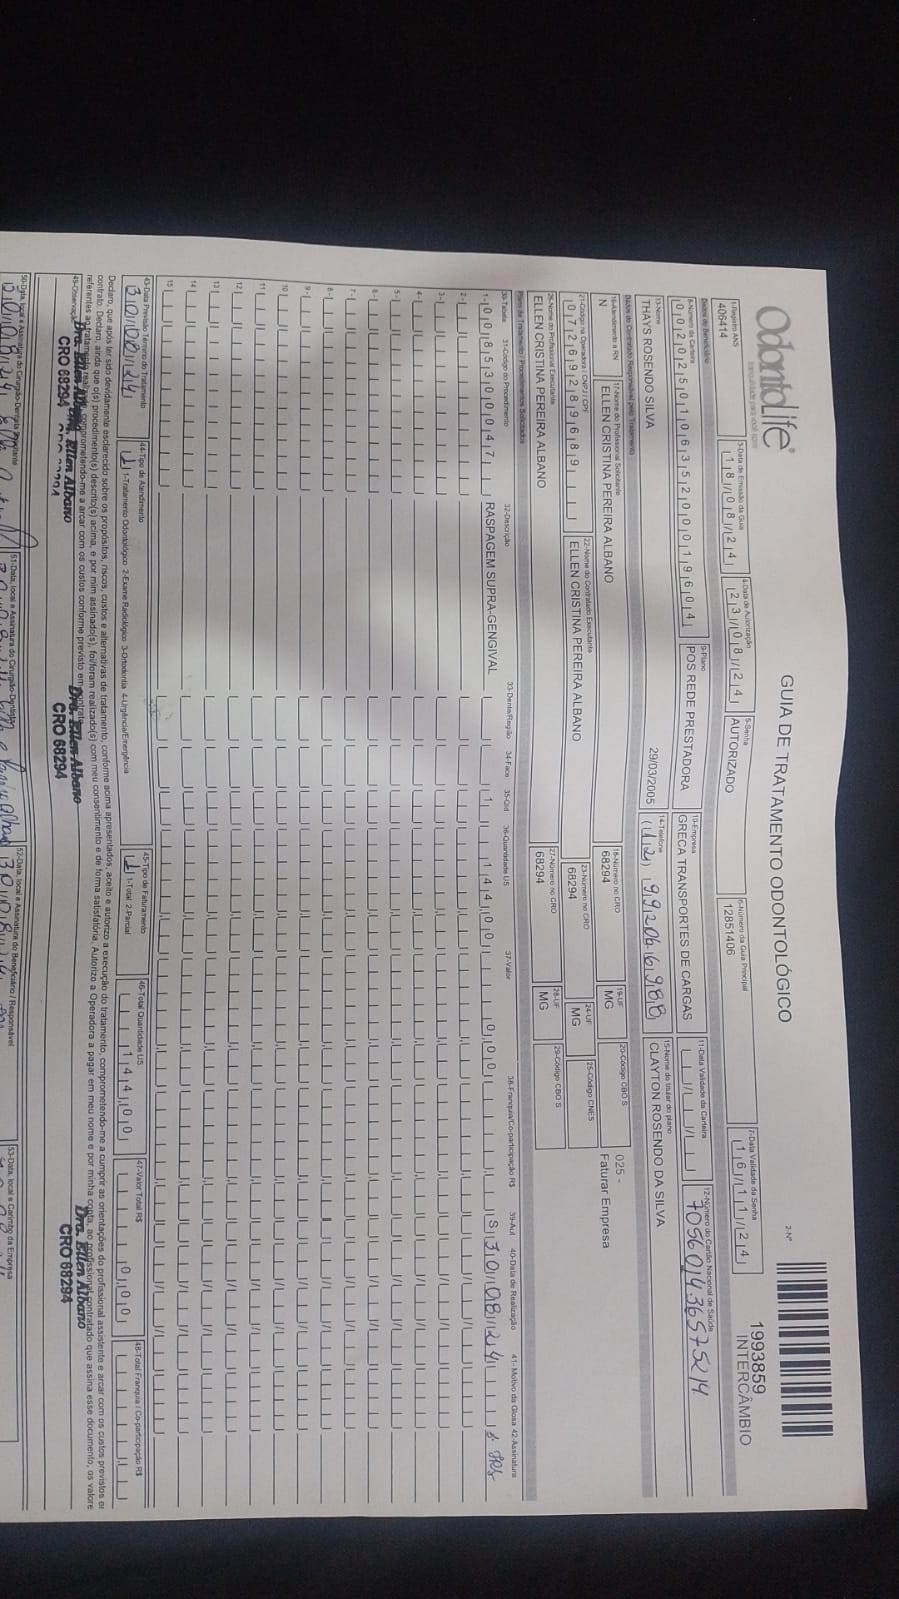 OdontoLife®
tranquilidade para você sorrir
GUIA DE TRATAMENTO ODONTOLÓGICO
2-Nº
1993859
INTERCÂMBIO
1-Registro ANS
406414
3-Data de Emissão da Guia
18/08/24
4-Data de Autorização
23/08/24
5-Senha
AUTORIZADO
6-Número da Guia Principal
12851406
7-Data Validade da Senha
16/11/24
Dados do Beneficiário
8-Número da Carteira
9-Plano
POS REDE PRESTADORA
10-Empresa
GRECA TRANSPORTES DE CARGAS
11-Data Validade da Carteira
12-Número do Cartão Nacional de Saúde
13-Nome
THAYS ROSENDO SILVA
29/03/2005
14-Telefone
(12) 992066988
15-Nome do titular do plano
CLAYTON ROSENDO DA SILVA
Dados do Contratado Responsável pelo Tratamento
16-Atendimento a RN
N
17-Nome do Profissional Solicitante
ELLEN CRISTINA PEREIRA ALBANO
18-Número no CRO
68294
19-UF
MG
20-Código CBO S
025 -
Faturar Empresa
21-Código na Operadora / CNPJ / CPF
07269289689
22-Nome do Contratado Executante
ELLEN CRISTINA PEREIRA ALBANO
23-Número no CRO
68294
24-UF
MG
25-Código CNES
26-Nome do Profissional Executante
ELLEN CRISTINA PEREIRA ALBANO
27-Número no CRO
68294
28-UF
MG
29-Código CBO S
Plano de Tratamento / Procedimentos Solicitados
30-Tabela 31-Código do Procedimento 32-Descrição 33-Dente/Região 34-Face 35-Qtd 36-Quantidade US 37-Valor 38-Franquia/Co-participação R$ 39-Aut 40-Data de Realização 41- Motivo da Glosa 42-Assinatura
1- 0085300047 RASPAGEM SUPRA-GENGIVAL 1 144,00 0,00 S 30/08/24
2-
3-
4-
5-
6-
7-
8-
9-
10
11
12
13
14
15
43-Data Previsão Término do Tratamento
30/08/24
44-Tipo de Atendimento
1 1-Tratamento Odontológico 2-Exame Radiológico 3-Ortodontia 4-Urgência/Emergência
45-Tipo de Faturamento
1 1-Total 2-Parcial
46-Total Quantidade US
144,00
47-Valor Total R$
0,00
48-Total Franquia / Co-participação R$
Declaro, que após ter sido devidamente esclarecido sobre os propósitos, riscos, custos e alternativas de tratamento, conforme acima apresentados, aceito e autorizo a execução do tratamento, comprometendo-me a cumprir as orientações do profissional assistente e arcar com os custos previstos em
contrato. Declaro, ainda que o(s) procedimento(s) descrito(s) acima, e por mim assinado(s), foi/foram realizado(s) com meu consentimento e de forma satisfatória. Autorizo a Operadora a pagar em meu nome e por minha conta, ao profissional contratado que assina esse documento, os valore
referentes ao tratamento realizado, comprometendo-me a arcar com os custos conforme previsto em contrato.
49-Observação
Dra. Ellen Albano
CRO 68294
Dra. Ellen Albano
CRO 68294
Dra. Ellen Albano
CRO 68294
50-Data, local e Assinatura do Cirurgião-Dentista Solicitante
51-Data, local e Assinatura do Cirurgião-Dentista
52-Data, local e Assinatura do Beneficiário / Responsável
53-Data, local e Carimbo da Empresa